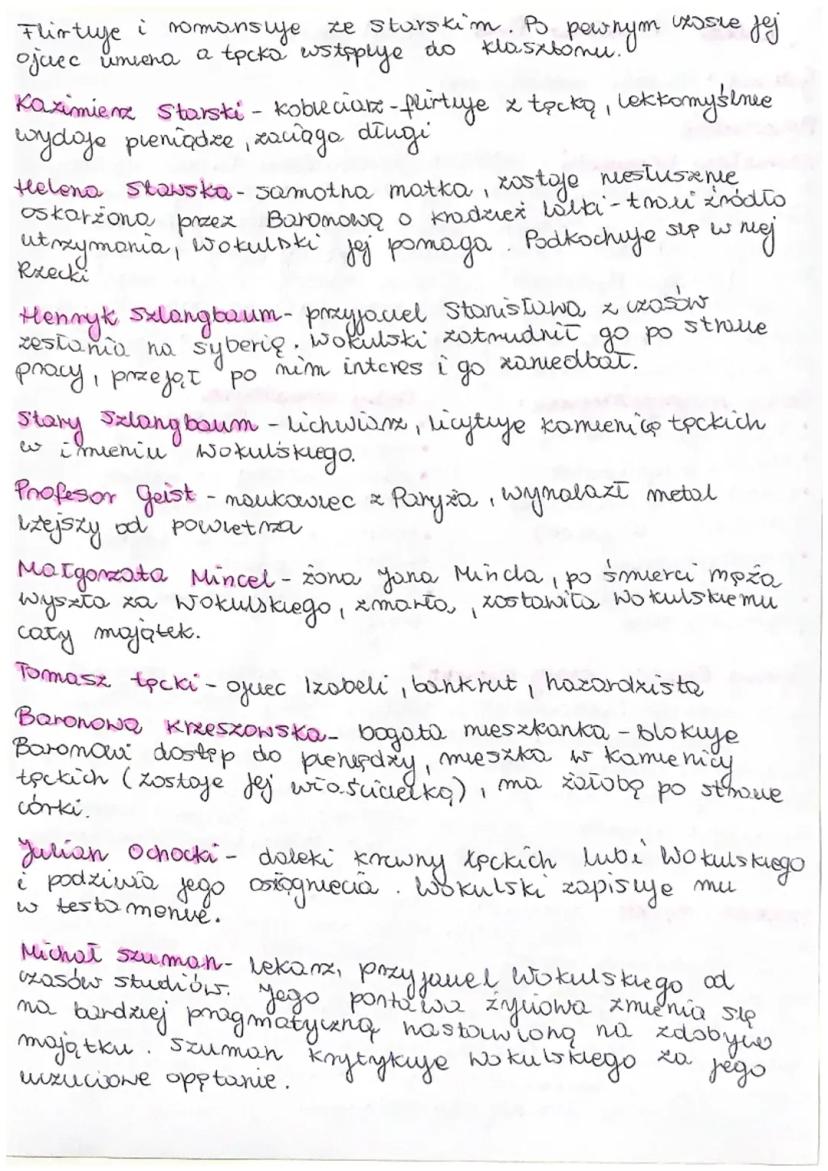 Flirtuje i romansuje ze Starskim. Po pewnym czasie jej
ojciec umiera a Łęcka wstępuje do klasztoru.
Kazimierz Starski - kobieciarz - flirtuje z Łęcką, lekkomyślnie
wydaje pieniądze, zaciąga długi
Helena Stawska - samotna matka, zostaje niesłusznie
oskarżona przez Baronową o kradzież lalki - traci źródło
utrzymania, Wokulski jej pomaga. Podkochuje się w niej
Rzecki
Henryk Szlangbaum - przyjaciel Stanisława z czasów
zesłania na syberię. Wokulski zatrudnił go po stracie
pracy, przejął po nim interes i go zaniedbał.
Stary Szlangbaum - lichwiarz, licytuje kamienicę Łęckich
w imieniu Wokulskiego.
Profesor Geist - naukowiec z Paryża, wynalazł metal
lżejszy od powietrza
Małgorzata Mincel - żona Jana Mincla, po śmierci męża
wyszła za Wokulskiego, zmarła, zostawiła Wokulskiemu
cały majątek.
Tomasz Łęcki - ojciec Izabeli, bankrut, hazardzista
Baronowa Krzeszowska - bogata mieszkanka - blokuje
Baronowi dostęp do pieniędzy, mieszka w kamienicy
Łęckich (zostaje jej właścicielką), ma żałobę po stracie
córki.
Julian Ochocki - daleki krewny Łęckich lubi Wokulskiego
i podziwia jego osiągniecia. Wokulski zapisuje mu
w testamencie.
Michał Szuman - lekarz, przyjaciel Wokulskiego od
czasów studiów. Jego postawa życiowa zmienia się
na bardziej pragmatyczną nastawioną na zdobycie
majątku. Szuman krytykuje Wokulskiego za jego
uczuciowe opętanie.